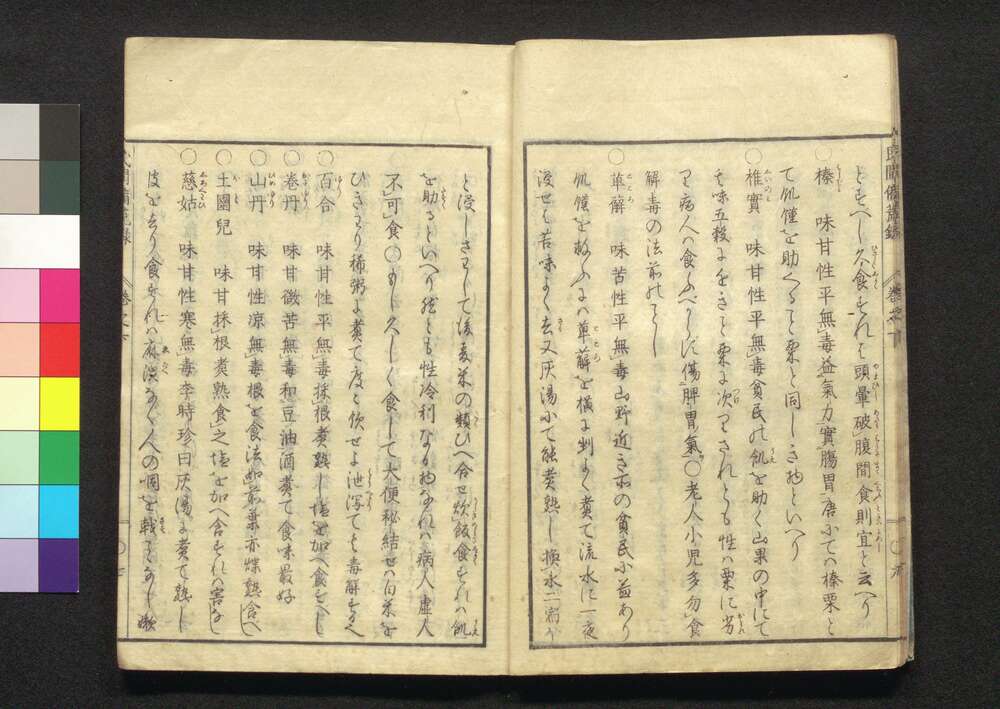 ともへし久食すれは頭暈破腹間食則宜と云へり
○榛　味甘性平無毒益氣力實腸胃唐にては榛栗と
て飢饉を助くること栗と同しき物といへり
○椎實　味甘性平無毒貧民の飢を助く山果の中にて
味五殺に栗に次り されとも性は栗に劣
り病人は食ふへからす傷脾胃氣○老人小児多勿食
解毒の法前のことし
○萆薢　味苦性平無毒山野近き所の貧民に益あり
飢饉を救ふには萆薢を横に剉よく煮て流水に一夜
浸せは苦味よく去又灰湯にて能煮熟し換水二宿
と浸しさわして後麦米の類ひへ合せ炊飯食すれは飢
を助るといへり然とも性冷利なる物なれは病人虚人
不可食○もし久しく食して大便秘結せは白米を
ひきわり稀粥に煮て度々飲せよ泄瀉ても毒解すへし
○百合　味甘性平無毒採根煮熟し塩を加へ食すへし
○巻丹　味甘微苦無毒和豆油酒煮て食味最好
○山丹　味甘性涼無毒根を食法如前葉亦煠熟食へし
○土圞兒　味甘採根煮熟食之塩を加へ食すれは害なし
○慈姑　味甘性寒無毒李時珍曰灰湯に煮て熟し
皮を去り食すれは麻渋なく人の咽を戟すなし嫩